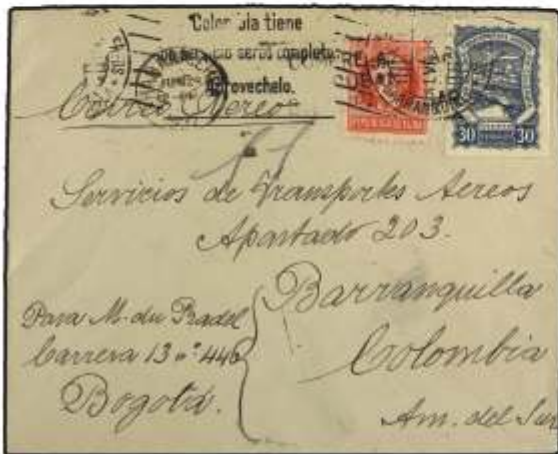 Colombia tiene
servicio aereo completo
Aprovechelo.
Correo Aereo
30 30
Servicios de Transportes Aereos
Apartado 203.
Barranquilla
Colombia
Am. del Sur
Para M. du Pradel
Carrera 13 nº 446
Bogotá.